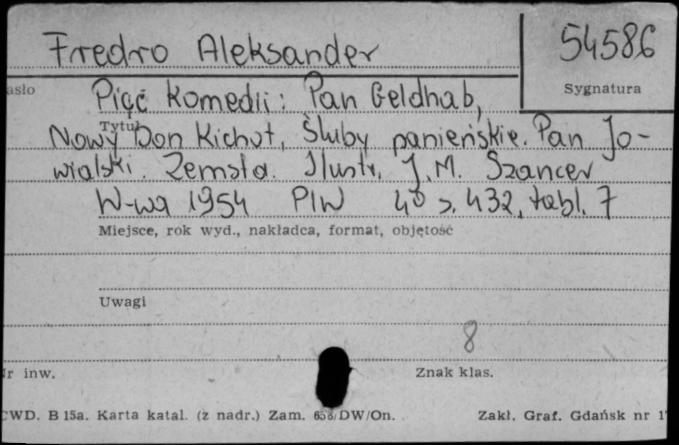 Fredro Aleksander
54586
asło
Sygnatura
Pięć komedii: Pan Geldhab,
Tytuł
Nowy Don Kichot, Śluby panieńskie. Pan Jo-
wialski. Zemsta. Ilustr. J. M. Szancer
W-wa 1954 PIW 4° s. 432, tabl. 7
Miejsce, rok wyd., nakładca, format, objętość
Uwagi
8
Nr inw.
Znak klas.
CWD. B 15a. Karta katal. (z nadr.) Zam. 658/DW/On. Zakł. Graf. Gdańsk nr 1